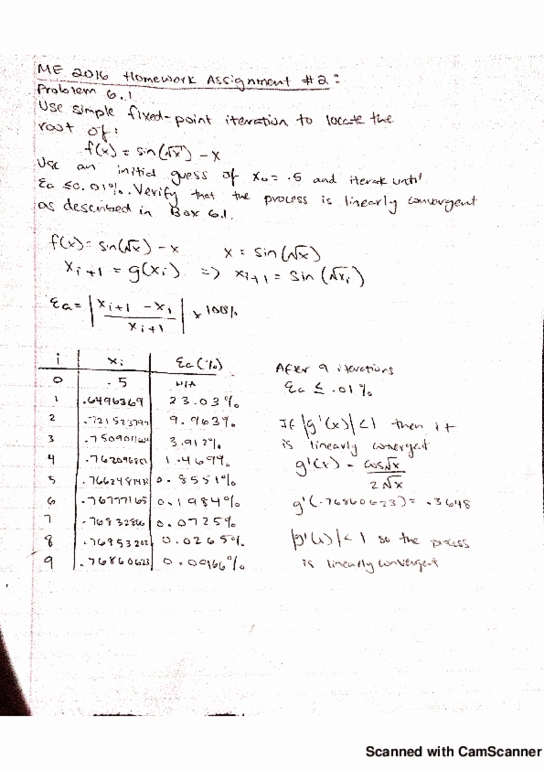 ME 2016 Homework Assignment #2:
Problem 6.1
Use simple fixed-point iteration to locate the
root of:
f(x) = sin(√x) - x
Use an initial guess of x₀ = .5 and iterate until
εa ≤ 0.01%. Verify that the process is linearly convergent
as described in Box 6.1.
f(x) = sin(√x) - x    x = sin(√x)
xᵢ₊₁ = g(xᵢ) => xᵢ₊₁ = sin(√xᵢ)
εa = |(xᵢ₊₁ - xᵢ)/xᵢ₊₁| x 100%
i    xᵢ    εa(%)
0    .5    N/A
1    .6496369    23.03%
2    9.963%
3    3.912%
4    1.469%
5    0.8551%
6    .76777165    0.1984%
7    .7683286    0.0725%
8    0.0265%
9    .76860623    0.00966%
After 9 iterations
εa ≤ .01%
If |g'(x)| < 1 then it
is linearly convergent
g'(x) = cos√x / 2√x
g'(.76860623) = .3648
|g'(x)| < 1 so the process
is linearly convergent
Scanned with CamScanner